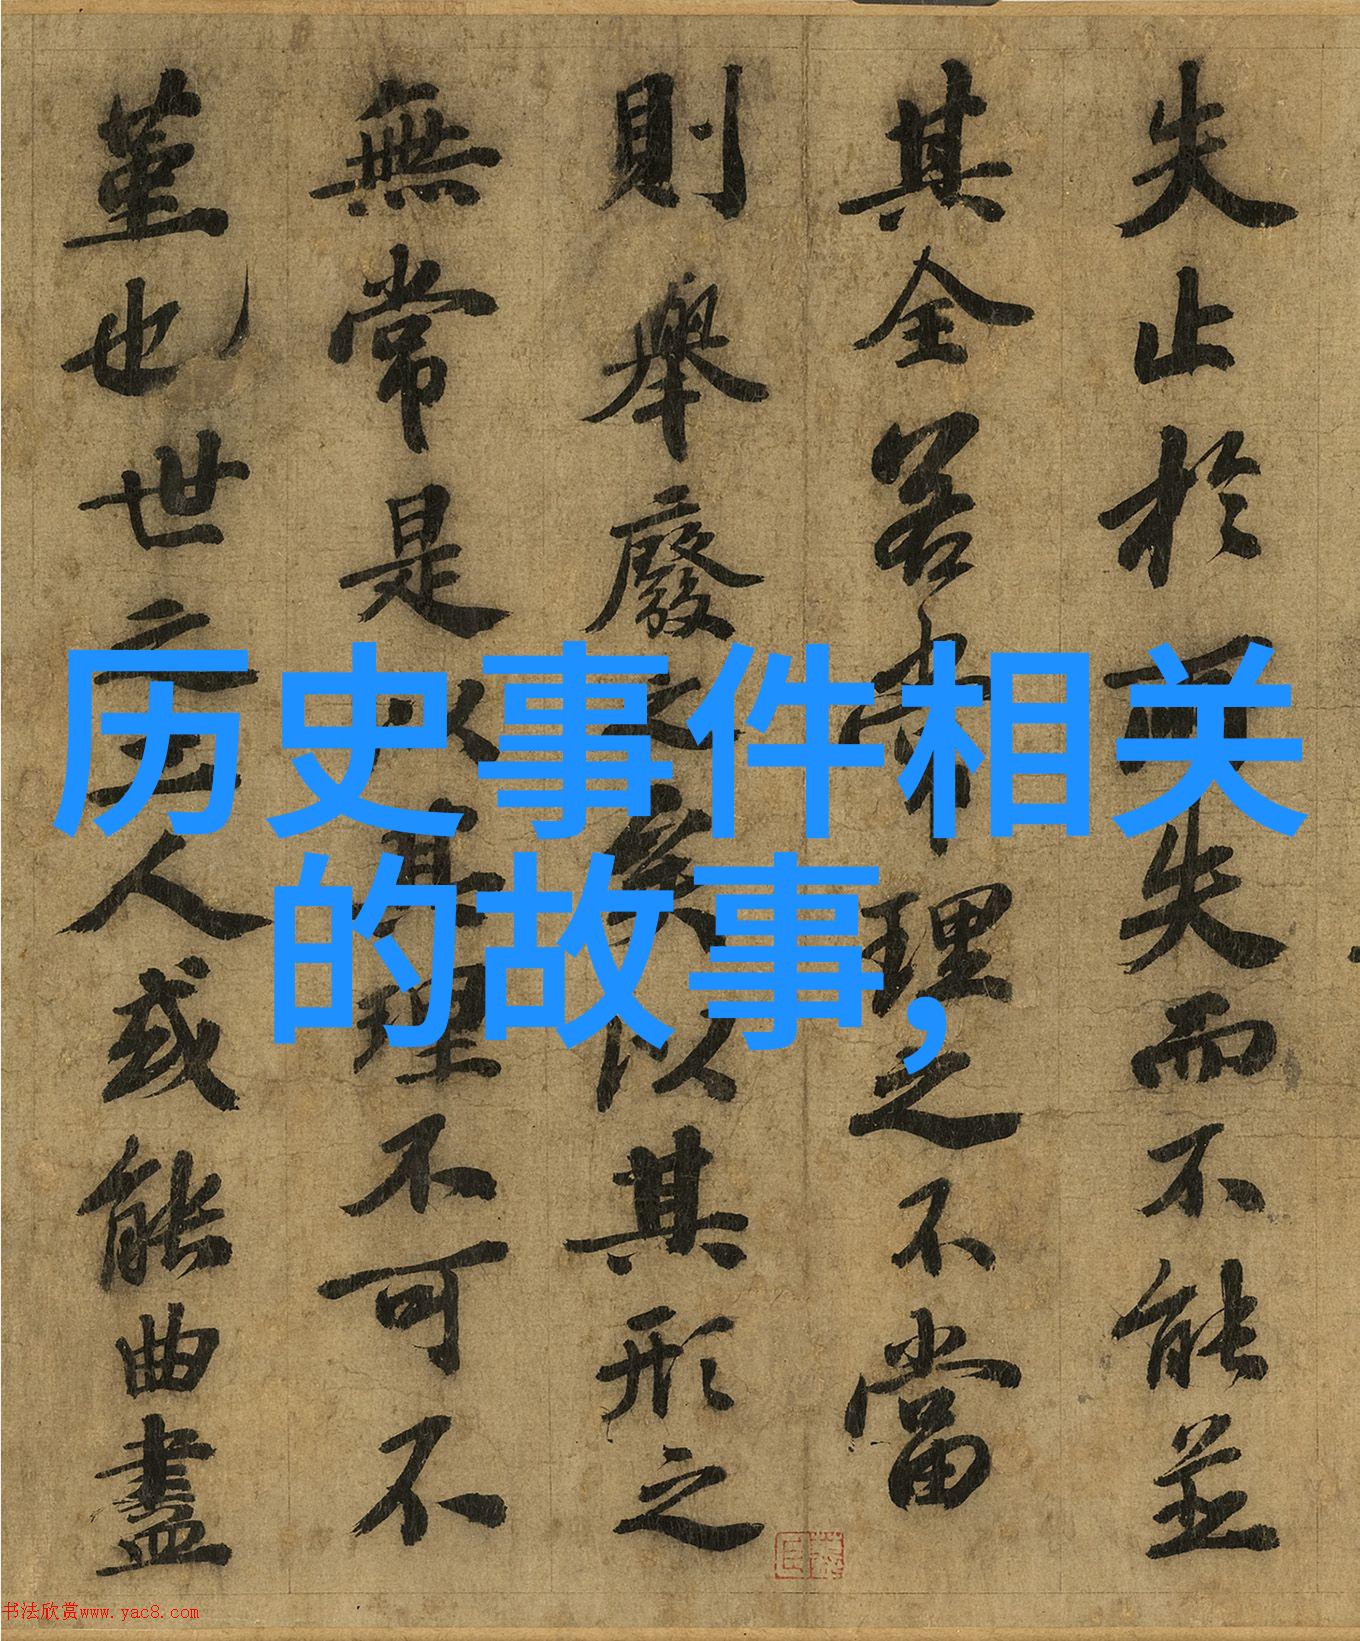 失止於所失而不能並
其全若常理之不當
則舉廢之矣以其形之
無常是以其理不可不
堇也世之工人或能曲盡
历史事件相关
的故事,
书法欣赏www.yac8.com